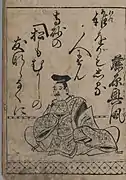 藤原興風
誰をかもしる
人にせん
高砂の
松もむかしの
友ならなくに